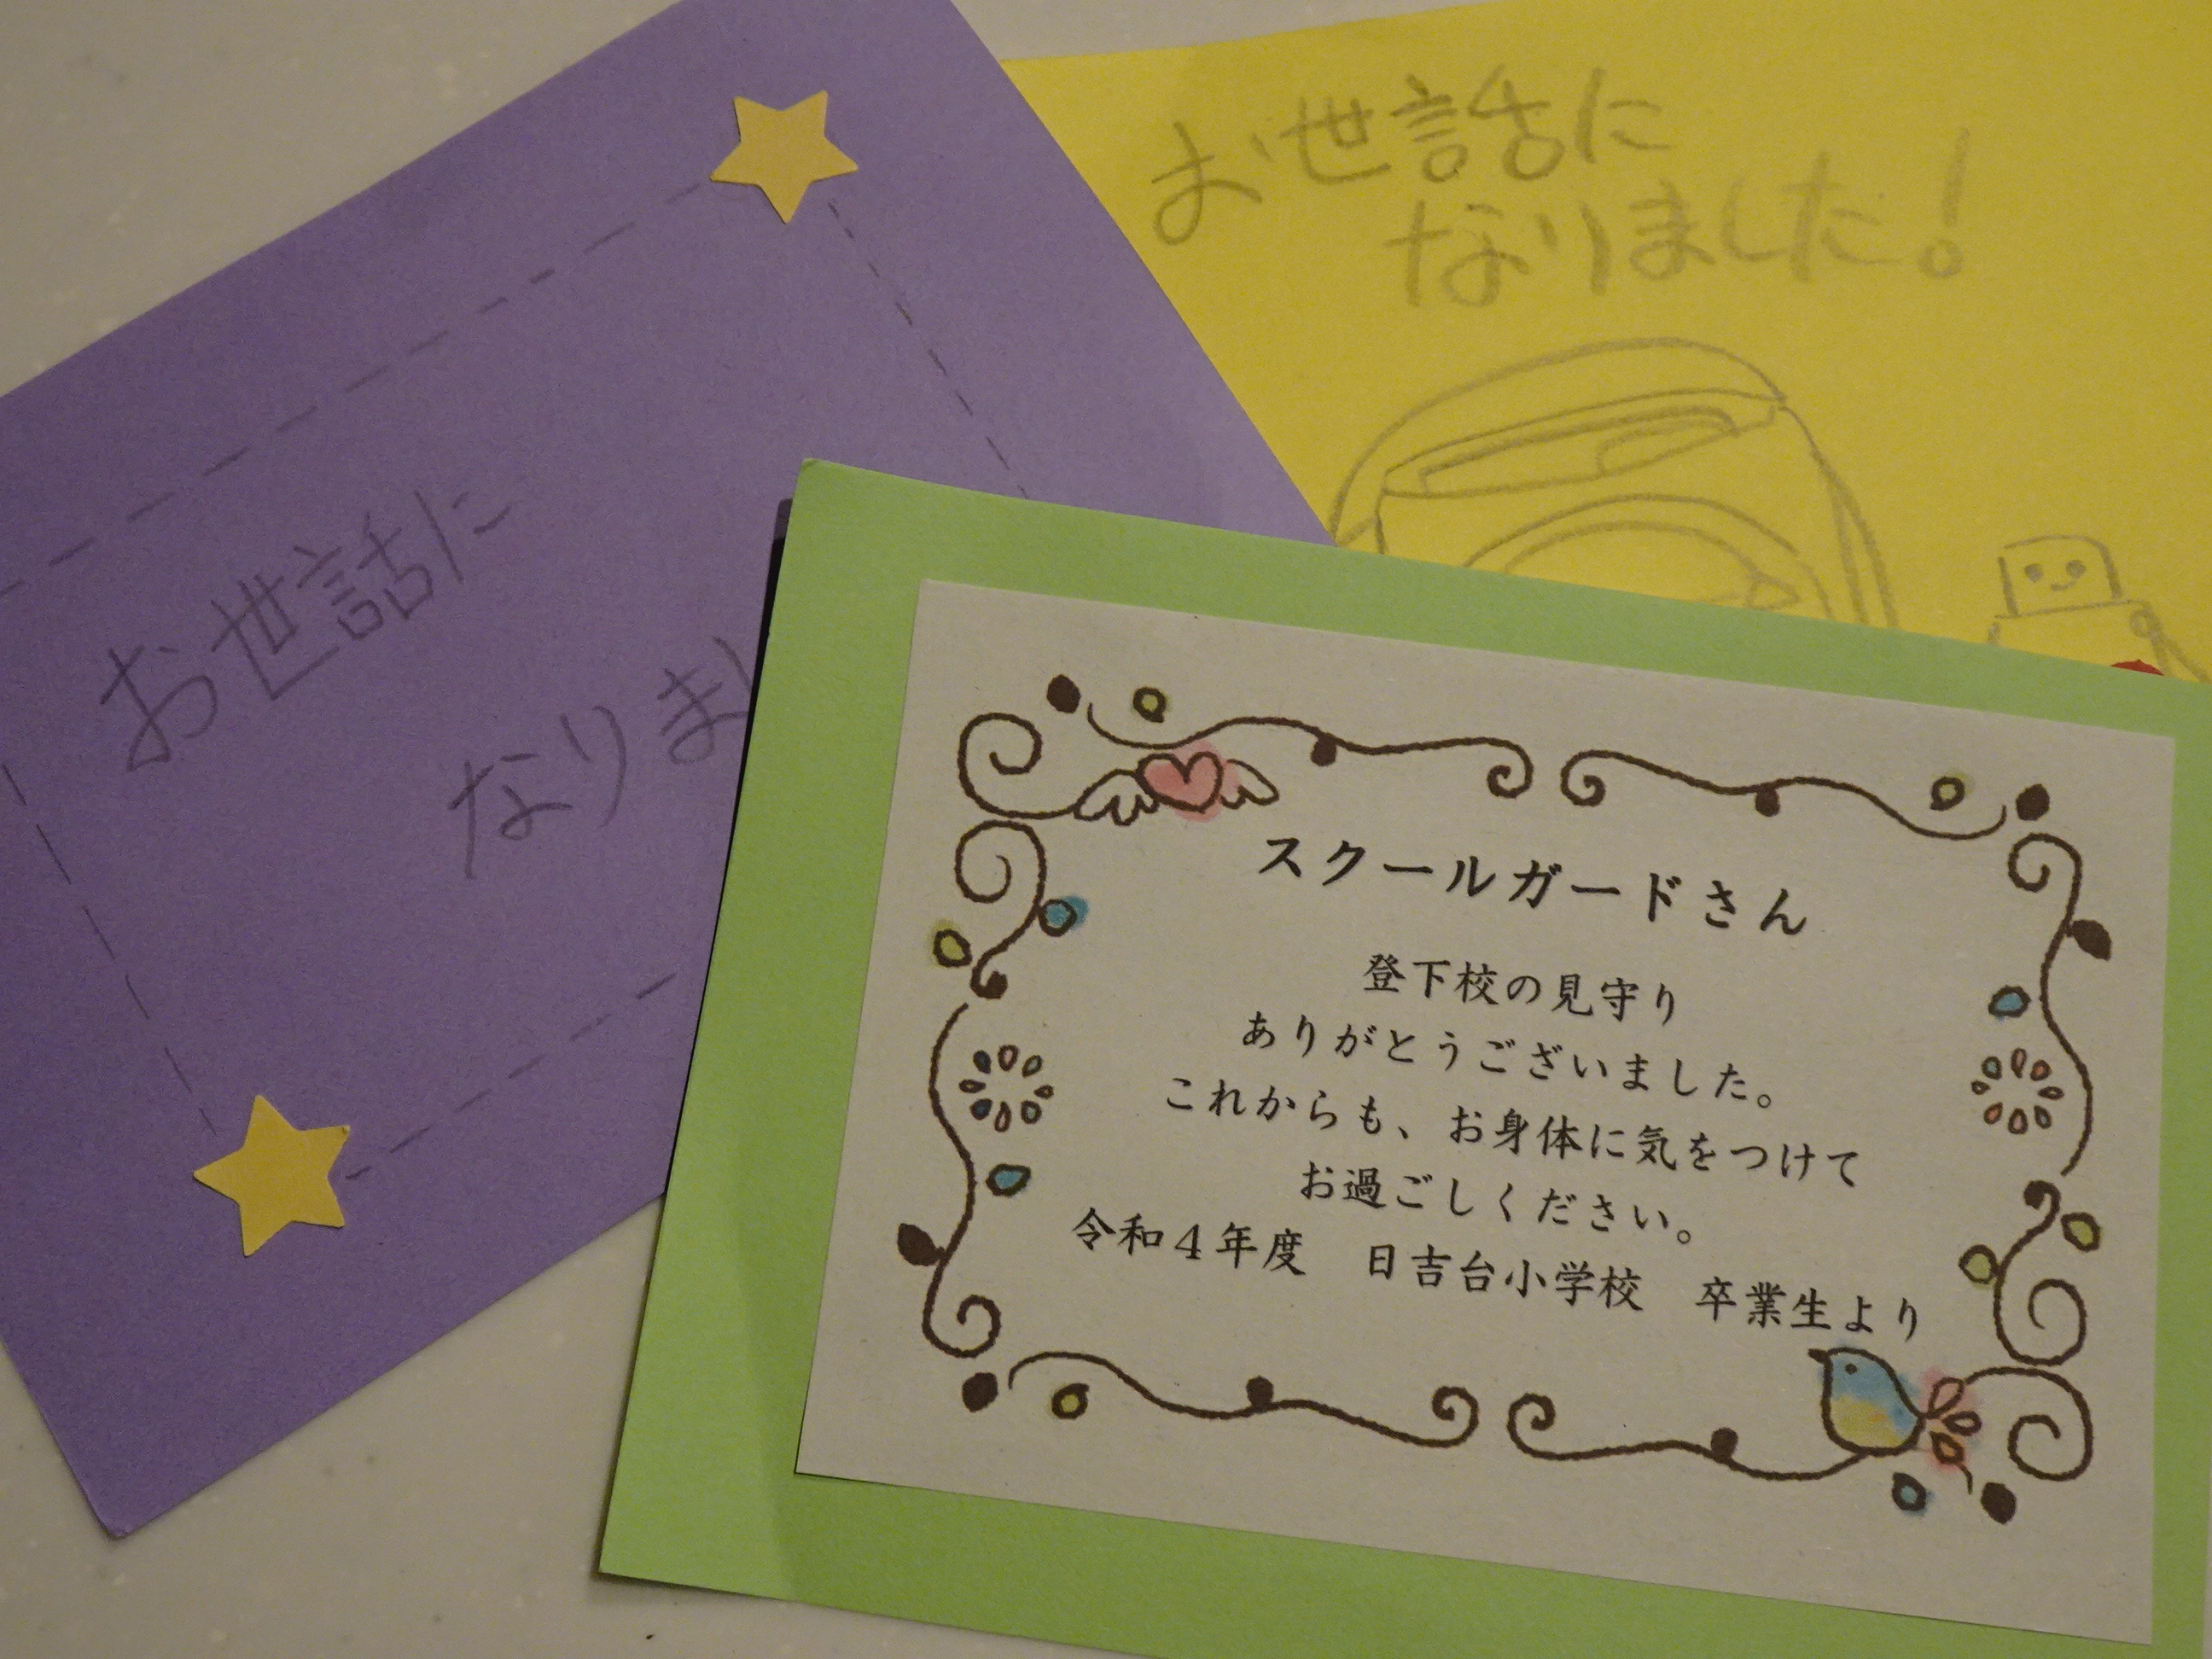 お世話に
なりました!
お世話に
なりまし
スクールガードさん
登下校の見守り
ありがとうございました。
これからも、お身体に気をつけて
お過ごしください。
令和4年度　日吉台小学校　卒業生より